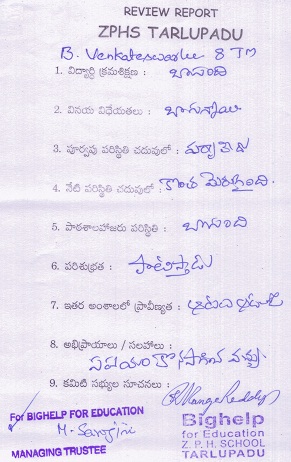 REVIEW REPORT
ZPHS TARLUPADU
B. Venkateswarlu 8 TM
1. విద్యార్థి క్రమశిక్షణ : బాగుంది
2. వినయ విధేయతలు :
3. పూర్వపు పరిస్థితి చదువులో :
4. నేటి పరిస్థితి చదువులో : కొంత మెరుగైంది.
5. పాఠశాలహాజరు పరిస్థితి : బాగుంది
6. పరిశుభ్రత : పాటిస్తాడు
7. ఇతర అంశాలలో ప్రావీణ్యత :
8. అభిప్రాయాలు / సలహాలు :
సహాయం కొనసాగించ వచ్చు
9. కమిటీ సభ్యుల సూచనలు :
For BIGHELP FOR EDUCATION
MANAGING TRUSTEE
Bighelp
for Education
Z. P. H. SCHOOL
TARLUPADU